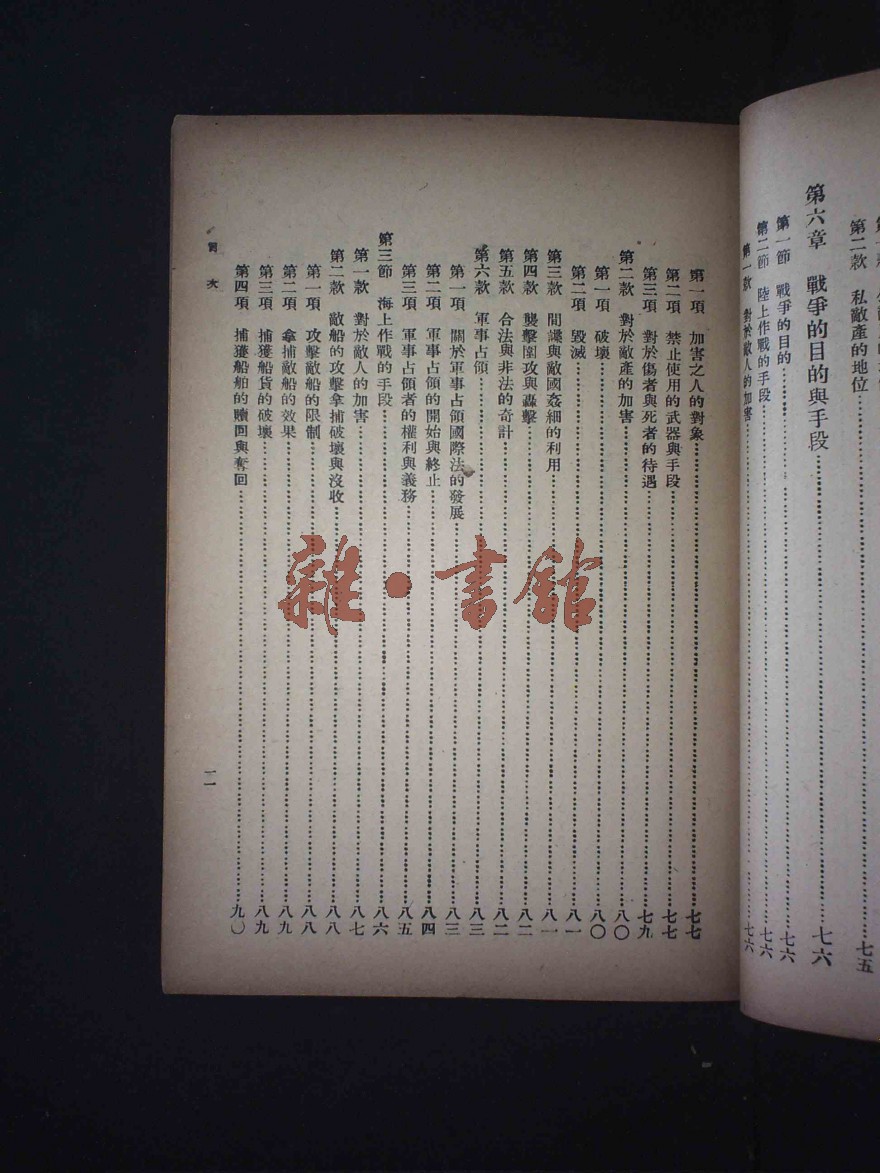 第二款 私敵產的地位……七五
第六章 戰爭的目的與手段……七六
第一節 戰爭的目的……七六
第二節 陸上作戰的手段……七六
第一款 對於敵人的加害……七六
第一項 加害之人的對象……七七
第二項 禁止使用的武器與手段……七七
第三項 對於傷者與死者的待遇……七九
第二款 對於敵產的加害……八〇
第一項 破壞……八〇
第二項 毀滅……八一
第三款 間諜與敵國姦細的利用……八一
第四款 襲擊圍攻與轟擊……八二
第五款 合法與非法的奇計……八二
第六款 軍事占領……八三
第一項 關於軍事占領國際法的發展……八三
第二項 軍事占領的開始與終止……八四
第三項 軍事占領者的權利與義務……八五
第三節 海上作戰的手段……八六
第一款 對於敵人的加害……八七
第二款 敵船的攻擊拿捕破壞與沒收……八八
第一項 攻擊敵船的限制……八八
第二項 拿捕敵船的效果……八九
第三項 捕獲船貨的破壞……八九
第四項 捕獲船舶的贖回與奪回……九〇
目次
二
雜·書館